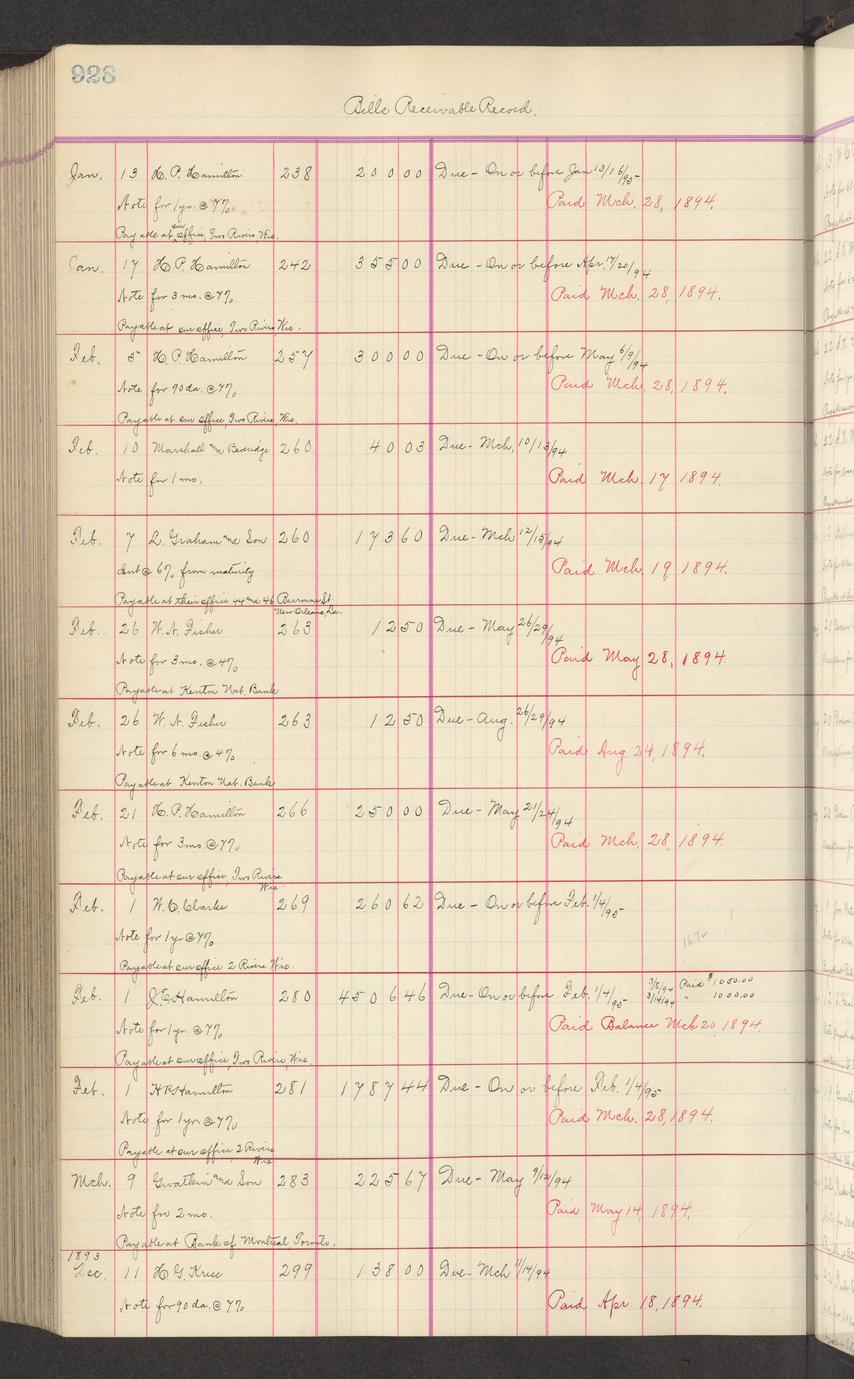 928
Bills Receivable Record.
Jan. 13 H. P. Hamilton 238 200 00 Due - On or before Jan 13/16/95
Note for 1 yr. @ 7%
Paid Mch. 28, 1894.
Payable at our office, Two Rivers Wis.
Jan. 17 H P. Hamilton 242 355 00 Due - On or before Apr. 17/20/94
Note for 3 mo. @ 7%
Paid Mch. 28, 1894.
Payable at our office, Two Rivers Wis.
Feb. 5 H. P. Hamilton 257 300 00 Due - On or before May 6/9/94
Note for 90 da. @ 7%
Paid Mch. 28, 1894.
Payable at our office, Two Rivers, Wis.
Feb. 10 Marshall and Beveridge 260 40 03 Due - Mch. 10/13/94
Note for 1 mo.
Paid Mch. 17 1894.
Feb. 7 L. Graham and Son 260 173 60 Due - Mch 12/15/94
Int @ 6% from maturity
Paid Mch. 19, 1894.
Payable at their office 44 and 46 Baronne St.
New Orleans, La.
Feb. 26 W. N. Fisher 263 12 50 Due - May 26/29/94
Note for 3 mo. @ 4%
Paid May 28, 1894.
Payable at Kenton Nat. Bank
Feb. 26 W. N. Fisher 263 12 50 Due - Aug. 26/29/94
Note for 6 mo. @ 4%
Paid Aug 24, 1894.
Payable at Kenton Nat. Bank
Feb. 21 H. P. Hamilton 266 250 00 Due - May 21/24/94
Note for 3 mo @ 7%
Paid Mch. 28, 1894.
Payable at our office, Two Rivers
Wis.
Feb. 1 W. C. Clarke 269 260 62 Due - On or before Feb. 1/4/95
Note for 1 yr @ 7%
Payable at our office 2 Rivers Wis.
Feb. 1 J. E. Hamilton 280 4506 46 Due - On or before Feb. 1/4/95 3/8/94 Paid $1000.00
3/14/94 " 1000.00
Note for 1 yr. @ 7%
Paid Balance Mch 20, 1894.
Payable at our office, Two Rivers, Wis.
Feb. 1 H P Hamilton 281 1787 44 Due - On or before Feb. 1/4/95
Note for 1 yr @ 7%
Paid Mch. 28, 1894.
Payable at our office 2 Rivers
Wis
Mch. 9 Gwatkin and Son 283 225 67 Due - May 9/12/94
Note for 2 mo.
Paid May 14, 1894.
Payable at Bank of Montreal, Toronto.
1893
Dec. 11 H. G. Kruse 299 138 00 Due - Mch 11/14/94
Note for 90 da. @ 7%
Paid Apr. 18, 1894.